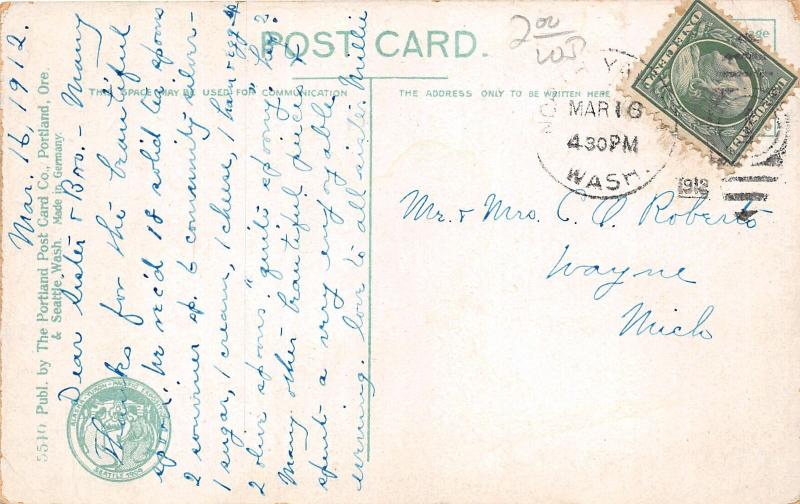 POST CARD.
THE SPACE MAY BE USED FOR COMMUNICATION
THE ADDRESS ONLY TO BE WRITTEN HERE
2.00
MAR 16
4 30 PM
WASH.
1912
Mr. & Mrs. C. P. Roberts
Wayne
Mich
5540 Publ. by The Portland Post Card Co., Portland, Ore.
& Seattle, Wash. Made in Germany.
SEATTLE 1909
Mar. 16, 1912.
Dear Sister & Bro. - Many
thanks for the beautiful
spoon. We rec'd 18 solid tea spoons
2 souvenir sp. 6 community silver-
1 sugar, 1 cream, 1 cheese, 1 ham & egg sp
2 olive spoons, "quite spoony". Have
Many other beautiful pieces &
spent a very enjoyable
evening. Love to all sister Millie